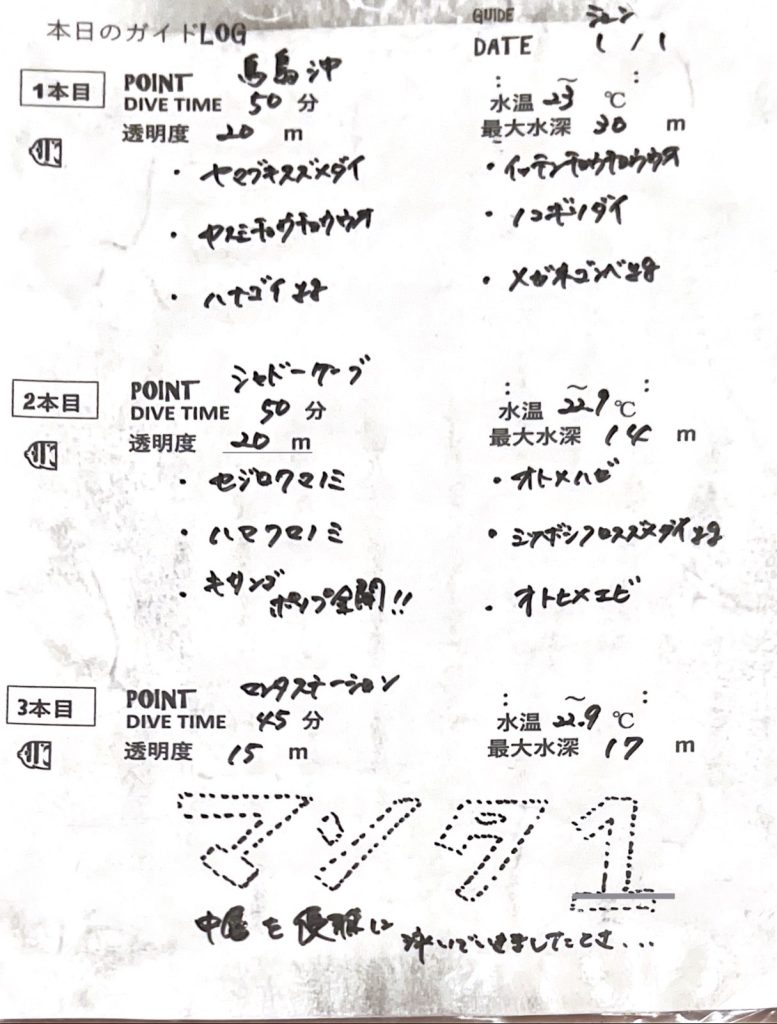 本日のガイドLOG
GUIDE ジュン
DATE 1 / 1
1本目
POINT 馬鳥沖
DIVE TIME 50 分
: 〜 :
水温 23 ℃
透明度 20 m
最大水深 30 m
・ヤマブキスズメダイ
・イッテンチョウチョウウオ
・ヤスジチョウチョウウオ
・ノコギリダイ
・ハナゴイ
・メガネゴンベ
2本目
POINT シャドーケーブ
DIVE TIME 50 分
: 〜 :
水温 22.9 ℃
透明度 20 m
最大水深 14 m
・セジロクマノミ
・オトメハゼ
・ハマクマノミ
・ミツボシクロスズメダイ
・キサンゴ
ポリプ全開!!
・オトヒメエビ
3本目
POINT マンタステーション
DIVE TIME 45 分
: 〜 :
水温 22.9 ℃
透明度 15 m
最大水深 17 m
マンタ1
中層を優雅に泳いでいきましたとさ...